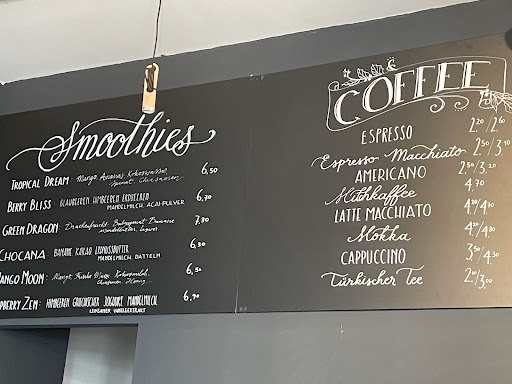 Smoothies
Tropical Dream: Mango Ananas, Kokoswasser, 6,50
Spinat, Chiasamen
Berry Bliss: Blaubeeren Himbeeren Erdbeeren 6,70
Mandelmilch, Acai-Pulver
Green Dragon: Drachenfrucht Babyspinat Banane 7,20
Mandelmilch, Ingwer
Chocana: Banane Kakao Erdnussbutter 6,80
Mandelmilch, Datteln
ango Moon: Mango, Frische Minze Kokosmilch, 6,50
Chiasamen, Honig
pberry Zen: Himbeeren Griechischer Jogurt Mandelmilch 6,90
Leinsamen Vanilleextrakt
COFFEE
Espresso 2.20/2.60
Espresso Macchiato 2.50/3.10
Americano 2.50/3.20
Milchkaffee 4.70
Latte Macchiato 4.30/4.90
Mokka
Cappuccino 3.50/4.30
Türkischer Tee 2.00/3.00